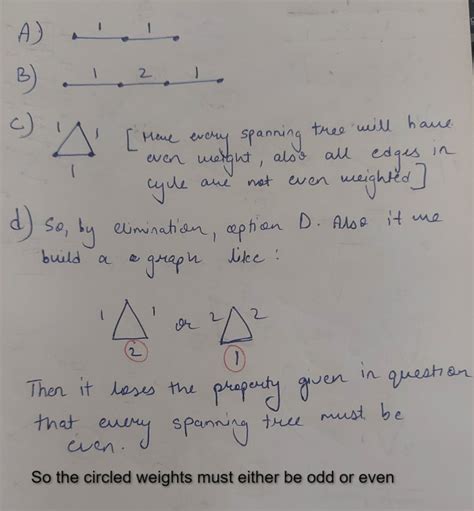 A) 1 1
B) 1 2 1
c) 1 1 [Here every spanning tree will have
even weight, also all edges in
1 cycle are not even weighted]
d) So, by elimination, option D. Also if we
build a a graph like :
1 1 or 2 2
2 1
Then it loses the property given in question
that every spanning tree must be
even.
So the circled weights must either be odd or even